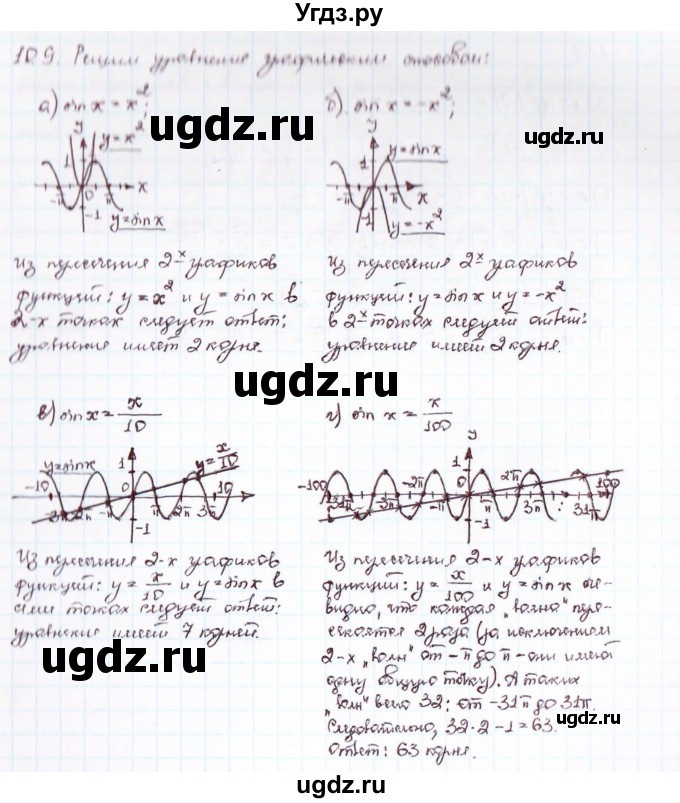 Угдз.ру
10.9. Решим уравнение графическим способом:
а) sin x = x²;
б) sin x = -x²;
ugdz.ru
ugdz.ru
y
y = x²
1
-π
π
x
-1
y = sin x
y
y = sin x
1
-π
π
x
-1
y = -x²
Из пересечения 2-х графиков
функций: y = x² и y = sin x в
2-х точках следует ответ:
уравнение имеет 2 корня.
Из пересечения 2-х графиков
функций: y = sin x и y = -x²
в 2-х точках следует ответ:
уравнение имеет 2 корня.
ugdz.ru
ugdz.ru
в) sin x = x/10
г) sin x = x/100
y = sin x
1
y = x/10
-10
0
10
-3π
-2π
-π
π
2π
3π
-1
y
-100
-2π
1
0
2π
100
-31π
-3π
-π
π
3π
31π
-1
Из пересечения 2-х графиков
функций: y = x/10 и y = sin x в
семи точках следует ответ:
уравнение имеет 7 корней.
Из пересечения 2-х графиков
функций: y = x/100 и y = sin x оче-
видно, что каждая „волна“ пере-
секается 2 раза (за исключением
2-х „волн“ от -π до π - они имеют
одну общую точку). А таких
„волн“ всего 32: от -31π до 31π.
Следовательно, 32·2-1=63.
Ответ: 63 корня.
ugdz.ru
ugdz.ru
ugdz.ru